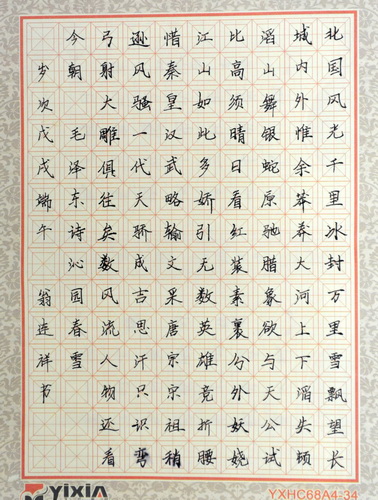 北国风光千里冰封万里雪飘望长
城内外惟余莽莽大河上下滔失顿
滔山舞银蛇原驰腊象欲与天公试
比高须晴日看红装素裹分外妖娆
江山如此多娇引无数英雄竞折腰
惜秦皇汉武略输文采唐宗宋祖稍
逊风骚一代天骄成吉思汗只识弯
弓射大雕俱往矣数风流人物还看
今朝 毛泽东诗沁园春雪
岁次戊戌端午 翁连祥书
YIXIN
YXHC68A4-34